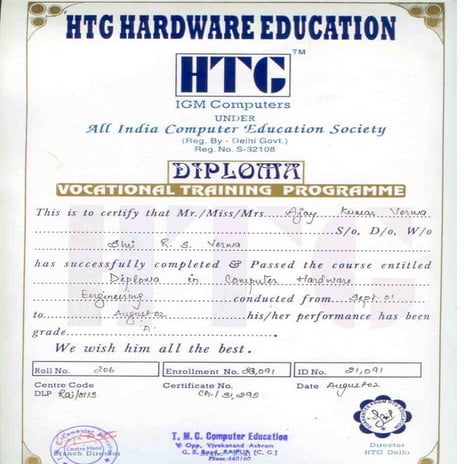 HTG HARDWARE EDUCATION
HTG TM
IGM Computers
UNDER
All India Computer Education Society
(Reg. By - Delhi Govt.)
Reg. No. S-32108
DIPLOMA
VOCATIONAL TRAINING PROGRAMME
This is to certify that Mr./Miss/Mrs. Ajay Kumar Verma
S/o, D/o, W/o
Shri R. S. Verma
has successfully completed & Passed the course entitled
Diploma in Computer Hardware
Engineering conducted from Sept. 01
to August 02 his/her performance has been
grade
We wish him all the best.
Roll No. 206 Enrollment No. 23,091 ID No. 21,091
Centre Code Certificate No. Date August 02
DLP Raj/0113 Ch/31,295
T. M. C. Computer Education
Opp. Vivekanand Ashram
G. E. Road, RAIPUR (C. G.)
Branch Director
Director
HTG Delhi